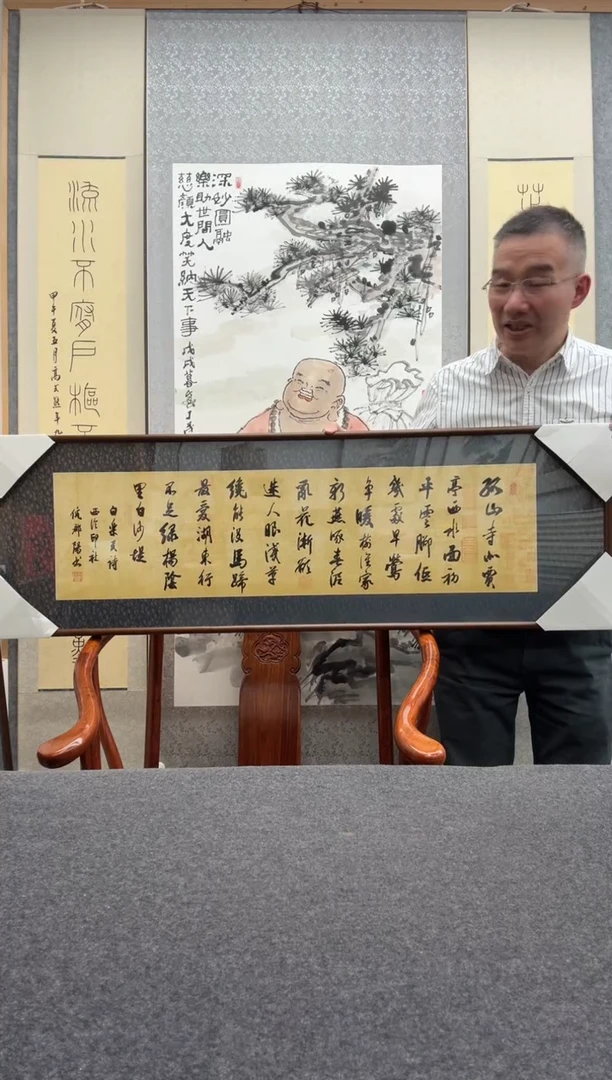 深妙圓融
樂助世間人
慈顏大度笑納天下事
戊戌暮
流水不腐戶樞不
甲午夏五月高
孤山寺北賈
亭西水面初
平雲腳低
幾處早鶯
爭暖樹誰家
新燕啄春泥
亂花漸欲
迷人眼淺草
纔能沒馬蹄
最愛湖東行
不足綠楊陰
里白沙堤
白樂天詩
西泠印社